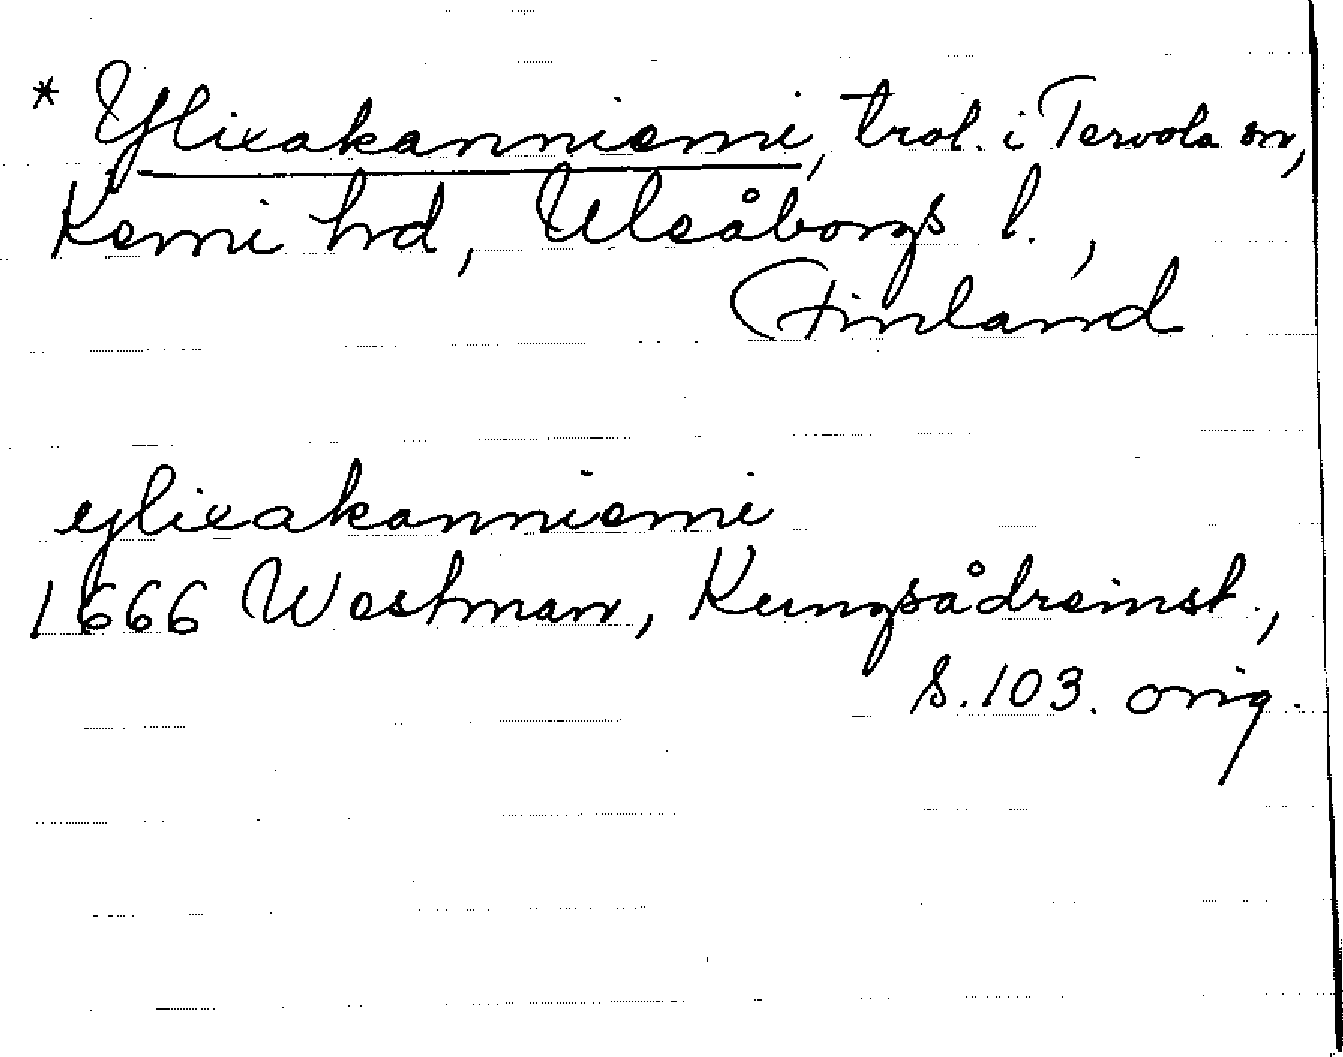 * Ylixakanniemi, trol. i Tervola sn,
Kemi hrd, Uleåborgs l.,
Finland
ylixakanniemi
1666 Westman, Kungsådreinst.,
s. 103. orig.